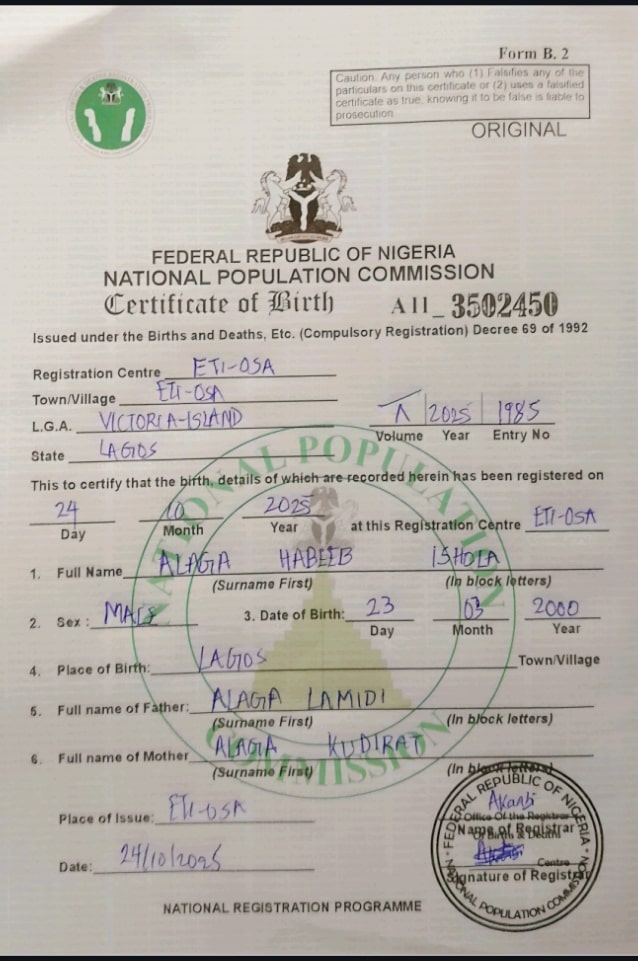 Form B. 2
Caution. Any person who (1) Falsifies any of the
particulars on this certificate or (2) uses a falsified
certificate as true, knowing it to be false is liable to
prosecution
ORIGINAL
FEDERAL REPUBLIC OF NIGERIA
NATIONAL POPULATION COMMISSION
Certificate of Birth A11_3502450
Issued under the Births and Deaths, Etc. (Compulsory Registration) Decree 69 of 1992
Registration Centre ETI-OSA
Town/Village ETI-OSA
L.G.A. VICTORIA-ISLAND
2025 1985
Volume Year Entry No
State LAGOS
This to certify that the birth, details of which are recorded herein has been registered on
24 10 2025 at this Registration Centre ETI-OSA
Day Month Year
1. Full Name ALAGA HABEEB ISHOLA
(Surname First) (In block letters)
2. Sex : MALE 3. Date of Birth: 23 03 2000
Day Month Year
4. Place of Birth: LAGOS Town/Village
5. Full name of Father: ALAGA LAMIDI
(Surname First) (In block letters)
6. Full name of Mother ALAGA KUDIRAT
(Surname First) (In block letters)
Place of Issue: ETI-OSA
Date: 24/10/2025
Akanbi
Office Of the Registrar
Name of Registrar
Of Births & Deaths
Centre
Signature of Registrar
FEDERAL REPUBLIC OF NIGERIA
NATIONAL POPULATION COMMISSION
NATIONAL POPULATION
COMMISSION
NATIONAL REGISTRATION PROGRAMME